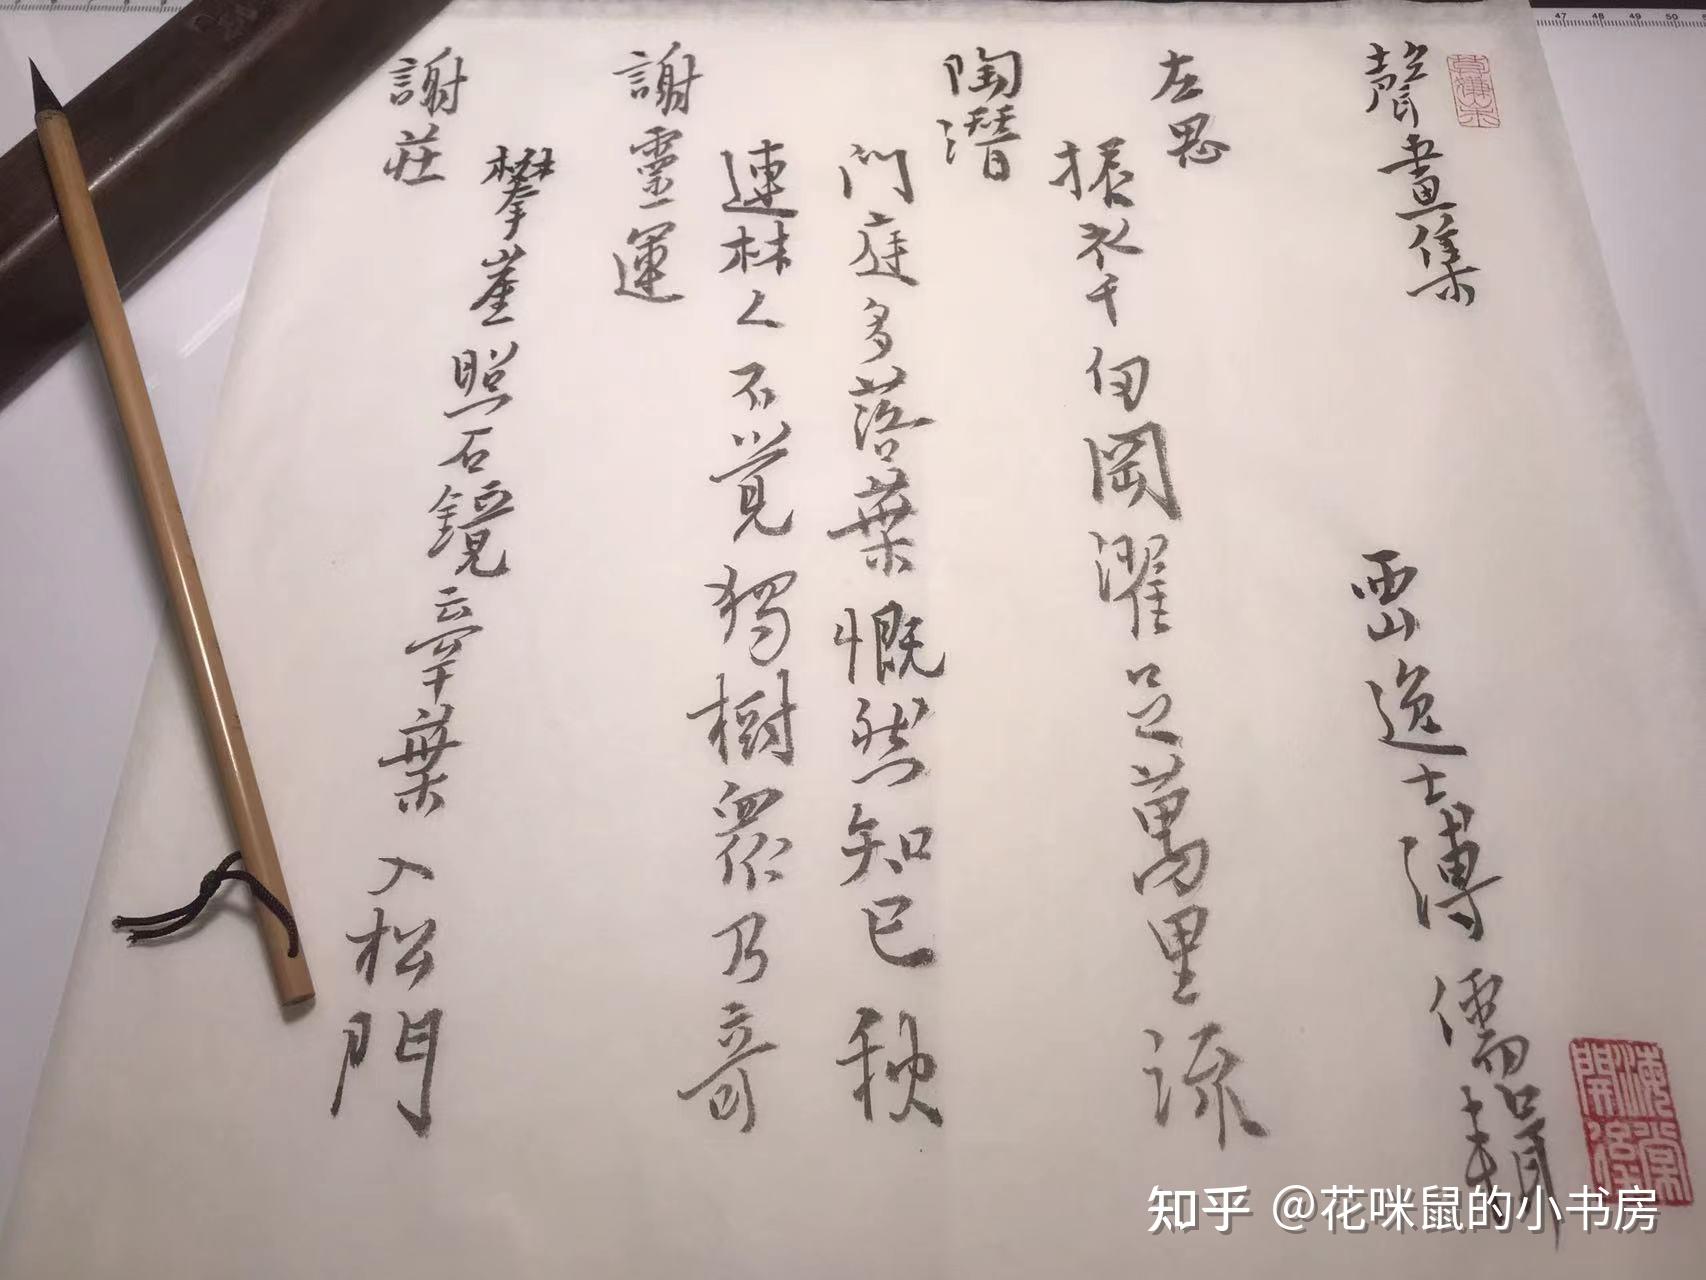 聲畫集
西山逸士溥儒輯
左思
振衣千仞岡濯足萬里流
陶潛
門庭多落葉慨然知已秋
連林人不覺獨樹眾乃奇
謝靈運
攀崖照石鏡牽葉入松門
謝莊
知乎 @花咪鼠的小书房
47 48 49 50